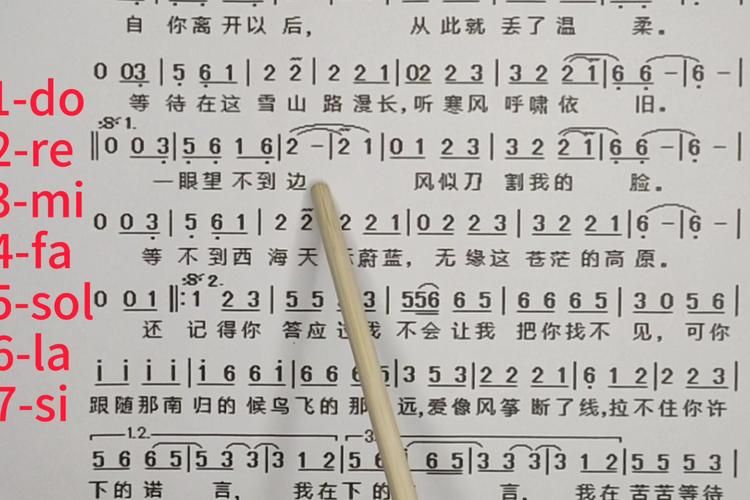 自 你离开以后， 从此就丢了温 柔。
0 03 | 5 6 1 | 2 2 | 2 2 1 | 02 2 3 | 3 2 2 1 | 6 6 - | 6 -
1-do
等 待在这 雪山 路漫长，听寒风 呼啸依 旧。
1.
2-re
0 0 3 | 5 6 1 6 | 2 - | 2 1 | 0 1 2 3 | 3 2 2 1 | 6 6 - | 6 -
一眼望不到边 风似刀 割我的 脸。
3-mi
0 0 3 | 5 6 1 | 2 2 2 2 1 | 0 2 2 3 | 3 2 2 1 | 6 - | 6 -
4-fa
等 不到西 海天 蔚蓝， 无缘这 苍茫的高原。
2.
5-sol
0 0 1 ‖: 1 2 3 | 5 5 3 | 556 6 5 | 6 6 6 5 | 3 0 5 6 |
还 记得你 答应 我 不会让我 把你找不 见，可你
6-la
i i i i | i 6 6 i | 6 6 6 5 | 3 5 3 | 2 2 2 1 | 6 1 2 | 2 2 3 |
跟随那南 归的候鸟飞的那 远，爱像风筝 断了线，拉不住你许
7-si
1.2. 3
5 6 6 5 | 5 3 3 | 3 1 2 | 5 6 6 5 | 3 3 3 | 3 1 2 | 5 5 5 3 |
下的诺 言， 我在下的 言， 我在苦苦等待